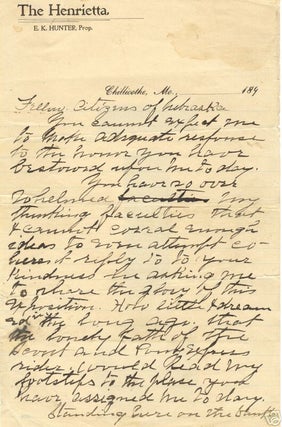 The Henrietta,
E. K. HUNTER, Prop.
Chillicothe, Mo., 189
Fellow Citizens of Nebraska
You cannot expect me
to make adequate response
to the honor you have
bestowed upon me to day.
You have so over
whelmed faculties my
thinking faculties that
I cannot corral enough
ideas to even attempt co-
herent reply to your
kindness in asking me
to share the glory of this
Exposition. How little I dream
ed in the long ago that
the lonely path of the
Scout and Pony Express
rider would lead my
footsteps to the place you
have assigned me to day.
Standing here on the banks